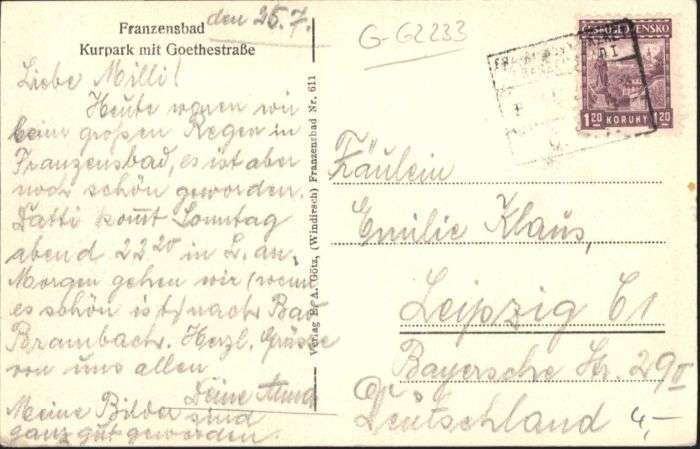 Franzensbad
Kurpark mit Goethestraße
den 25.7.
G-G2233
Liebe Milli!
Heute waren wir
beim großen Regen in
Franzensbad, es ist aber
noch schön geworden.
Tatti kom̅t Sonntag
abend 22²⁰ in L. an.
Morgen gehen wir (wenn
es schön ist) nach Bad
Brambach. Herzl. Grüsse
von uns allen
Deine Anna
Meine Bilder sind
ganz gut geworden.
Verlag E. A. Götz, (Windirsch) Franzensbad Nr. 611
ČESKOSLOVENSKO
1.20 KORUNY 1.20
Fräulein
Emilie Klaus,
Leipzig C1
Bayersche Str. 29II
Deutschland
4,-